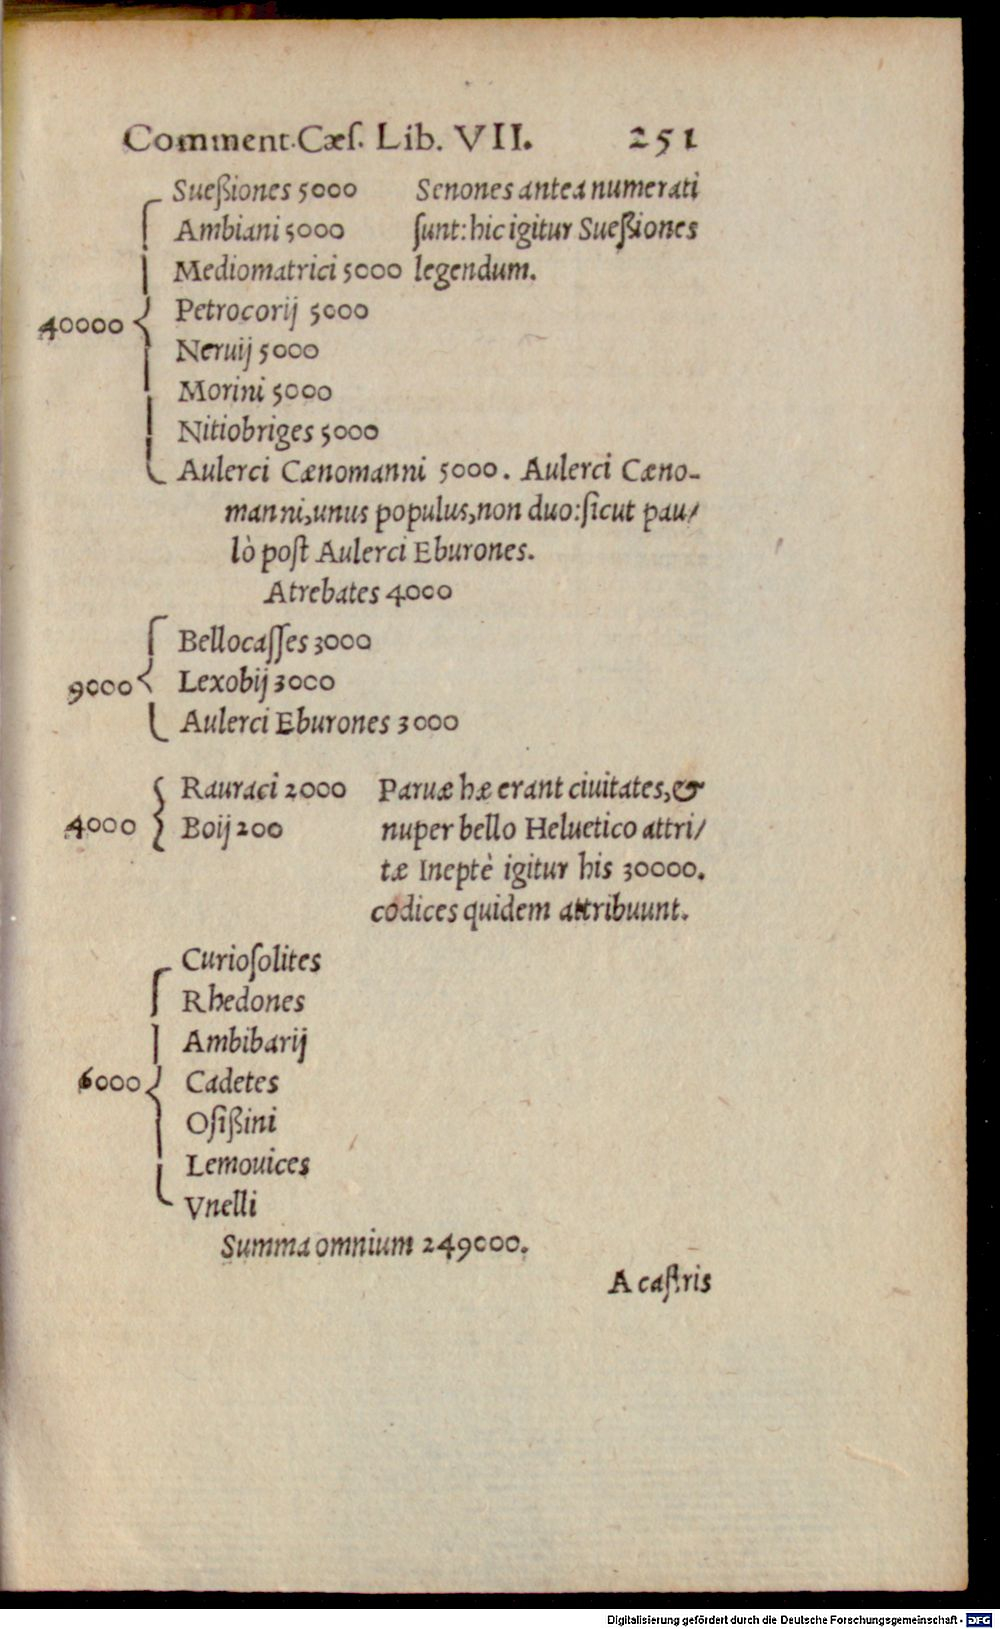 Comment. Cæſ. Lib. VII. 251
Sueßiones 5000 Senones antea numerati
Ambiani 5000 ſunt: hic igitur Sueßiones
Mediomatrici 5000 legendum.
Petrocorij 5000
40000
Neruij 5000
Morini 5000
Nitiobriges 5000
Aulerci Cænomanni 5000. Aulerci Cæno-
manni, unus populus, non duo: ſicut pau/
lò poſt Aulerci Eburones.
Atrebates 4000
Bellocaſſes 3000
9000 Lexobij 3000
Aulerci Eburones 3000
Rauraci 2000 Paruæ hæ erant ciuitates, &
4000 Boij 200 nuper bello Heluetico attri/
tæ Ineptè igitur his 30000.
codices quidem attribuunt.
Curioſolites
Rhedones
Ambibarij
6000 Cadetes
Oſißini
Lemouices
Vnelli
Summa omnium 249000.
A caſtris
Digitalisierung gefördert durch die Deutsche Forschungsgemeinschaft - DFG